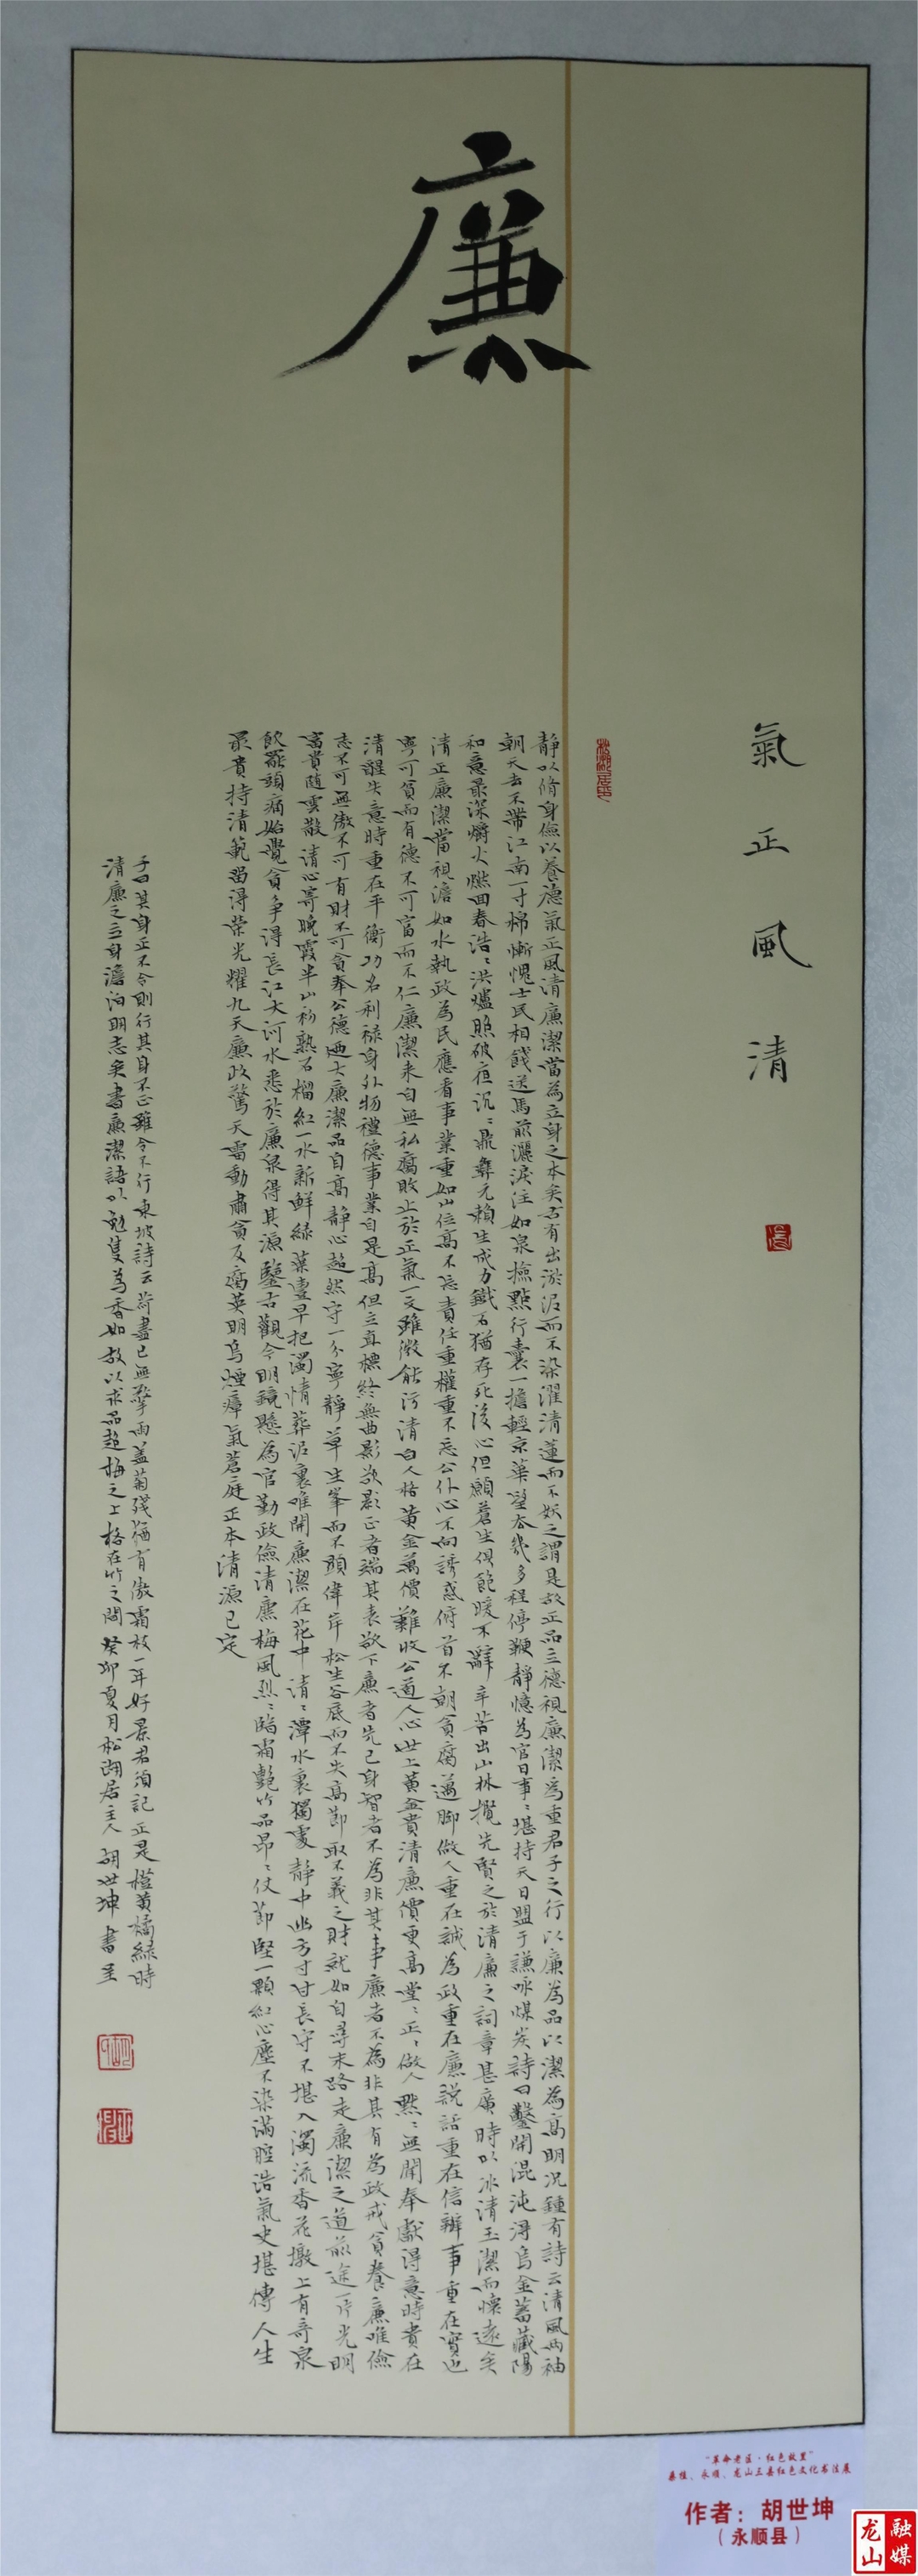 廉
氣正風清
静以脩身儉以養德氣正風清廉潔當為立身之本矣古有出淤泥而不染濯清蓮而不妖之謂是故正品立德視廉潔為重君子之行以廉為品以潔為高明况鍾有詩云清風兩袖
朝天去不帶江南一寸棉慚愧士民相餞送馬前灑淚注如泉撿點行囊一擔輕京華望去幾多程停鞭靜憶為官日事〻堪持天日盟于謙咏煤炭詩曰鑿開混沌得烏金蓄藏陽
和意最深爝火燃回春浩〻洪爐照破夜沉〻鼎彝元賴生成力鐵石猶存死後心但願蒼生俱飽暖不辭辛苦出山林攬先賢之於清廉之詞章甚廣時以冰清玉潔而懷遠矣
清正廉潔當視澹如水執政為民應看事業重如山位高不忘責任重權重不忘公仆心不向誘惑俯首不朝貪腐邁脚做人重在誠為政重在廉説話重在信辦事重在實也
寧可貧而有德不可富而不仁廉潔来自無私腐敗止於正氣一文雖微能污清白人格黃金萬價難收公道人心世上黃金貴清廉價更高堂〻正〻做人默〻無聞奉獻得意時貴在
清醒失意時重在平衡功名利禄身外物禮德事業自是高但立直標終無曲影欲影正者端其表欲下廉者先己身智者不為非其事廉者不為非其有為政戒貪養廉唯儉
志不可無傲不可有財不可貪奉公德廼大廉潔品自高靜心超然守一分寧靜草生峯而不顯偉岸松生谷底而不失高節取不義之財就如自尋末路走廉潔之道前途一片光明
富貴隨雲散清心寄晚霞半山初熟石榴紅一水新鮮綠葉豐早把濁情葬泥裏唯開廉潔在花中清〻潭水裏獨處靜中幽方寸甘長守不堪入濁流香花墩上有奇泉
飲罷頭痛始覺貪争得長江大河水悉於廉泉得其源鑒古觀今明鏡懸為官勤政儉清廉梅風烈〻臨霜艷竹品昂〻仗節堅一顆紅心塵不染滿腔浩氣史堪傳人生
最貴持清範留得榮光耀九天廉政驚天雷動肅貪反腐英明烏煙瘴氣蒼庭正本清源已定
子曰其身正不令則行其身不正雖令不行東坡詩云荷盡已無擎雨盖菊殘猶有傲霜枝一年好景君須記正是橙黄橘綠時
清廉之立身澹泊明志矣書廉潔語以勉隻為香如故以求品超梅之上格在竹之間癸卯夏月松湖居主人胡世坤書呈
“革命老区·红色故里”
桑植、永顺、龙山三县红色文化书法展
作者：胡世坤
（永顺县）
龙山
融媒